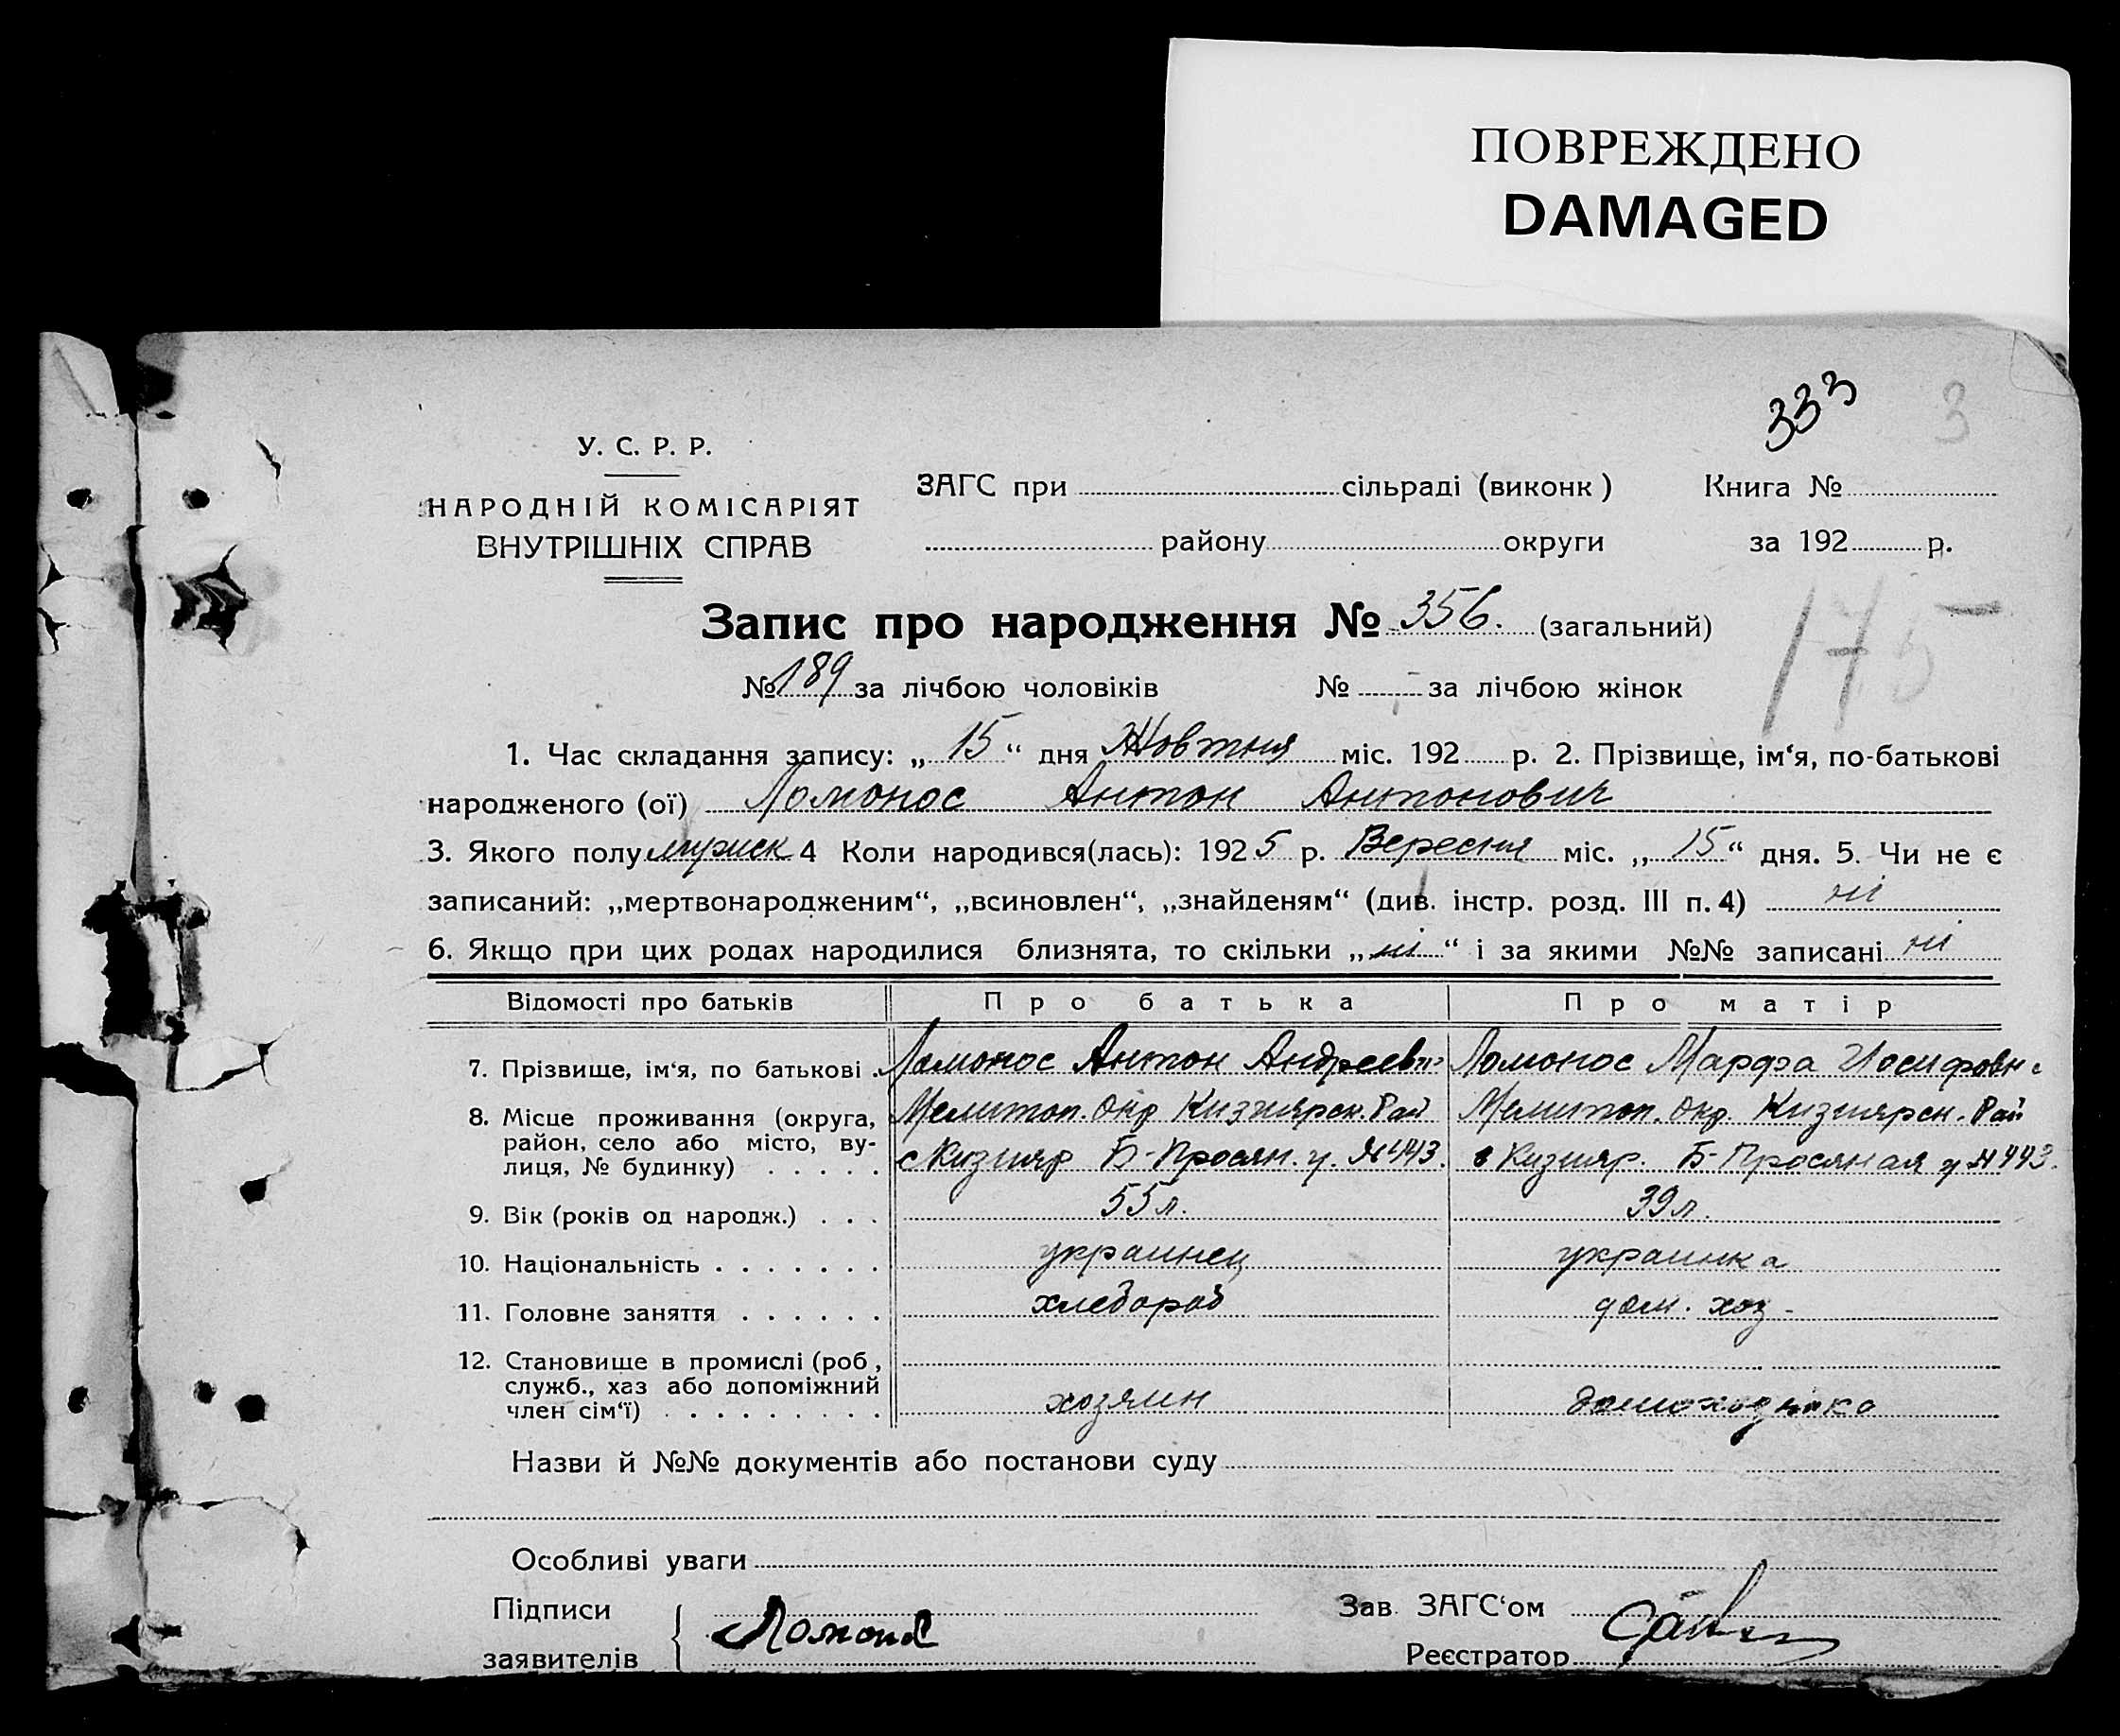 ПОВРЕЖДЕНО
DAMAGED
333 3
У. С. Р. Р.
НАРОДНІЙ КОМІСАРІЯТ
ВНУТРІШНІХ СПРАВ
ЗАГС при сільраді (виконк)
району округи
Книга №
за 192 р.
Запис про народження № 356. (загальний)
175
№ 189 за лічбою чоловіків № - за лічбою жінок
1. Час складання запису: „15“ дня Жовтня міс. 192 р. 2. Прізвище, ім‘я, по-батькові
народженого (ої) Ломонос Антон Антонович
3. Якого полу мужеск 4 Коли народився(лась): 1925 р. Вересня міс. „15“ дня. 5. Чи не є
записаний: „мертвонародженим“, „всиновлен“, „знайденям“ (див. інстр. розд. III п. 4) ні
6. Якщо при цих родах народилися близнята, то скільки „ні“ і за якими №№ записані ні
Відомості про батьків Про батька Про матір
7. Прізвище, ім‘я, по батькові . Ломонос Антон Андреевич Ломонос Марфа Иосифовн
8. Місце проживання (округа, Мелитоп. Окр Кизиярск. Рай Мелитоп. Окр. Кизиярск. Рай
район, село або місто, ву-
лиця, № будинку) . . . . . с Кизияр Б-Просян. у. № 443. с Кизияр. Б-Просяная у № 443.
9. Вік (років од народж.) . . . 55 л. 39 л.
10. Національність . . . . . . . украинец украинка
11. Головне заняття . . . . . . хлебороб дом. хоз-
12. Становище в промислі (роб,
служб., хаз або допоміжний
член сім‘ї) . . . . . . . . . хозяин домохозяйка
Назви й №№ документів або постанови суду
Особливі уваги
Підписи
заявителів Ломонос
Зав. ЗАГС‘ом
Реєстратор